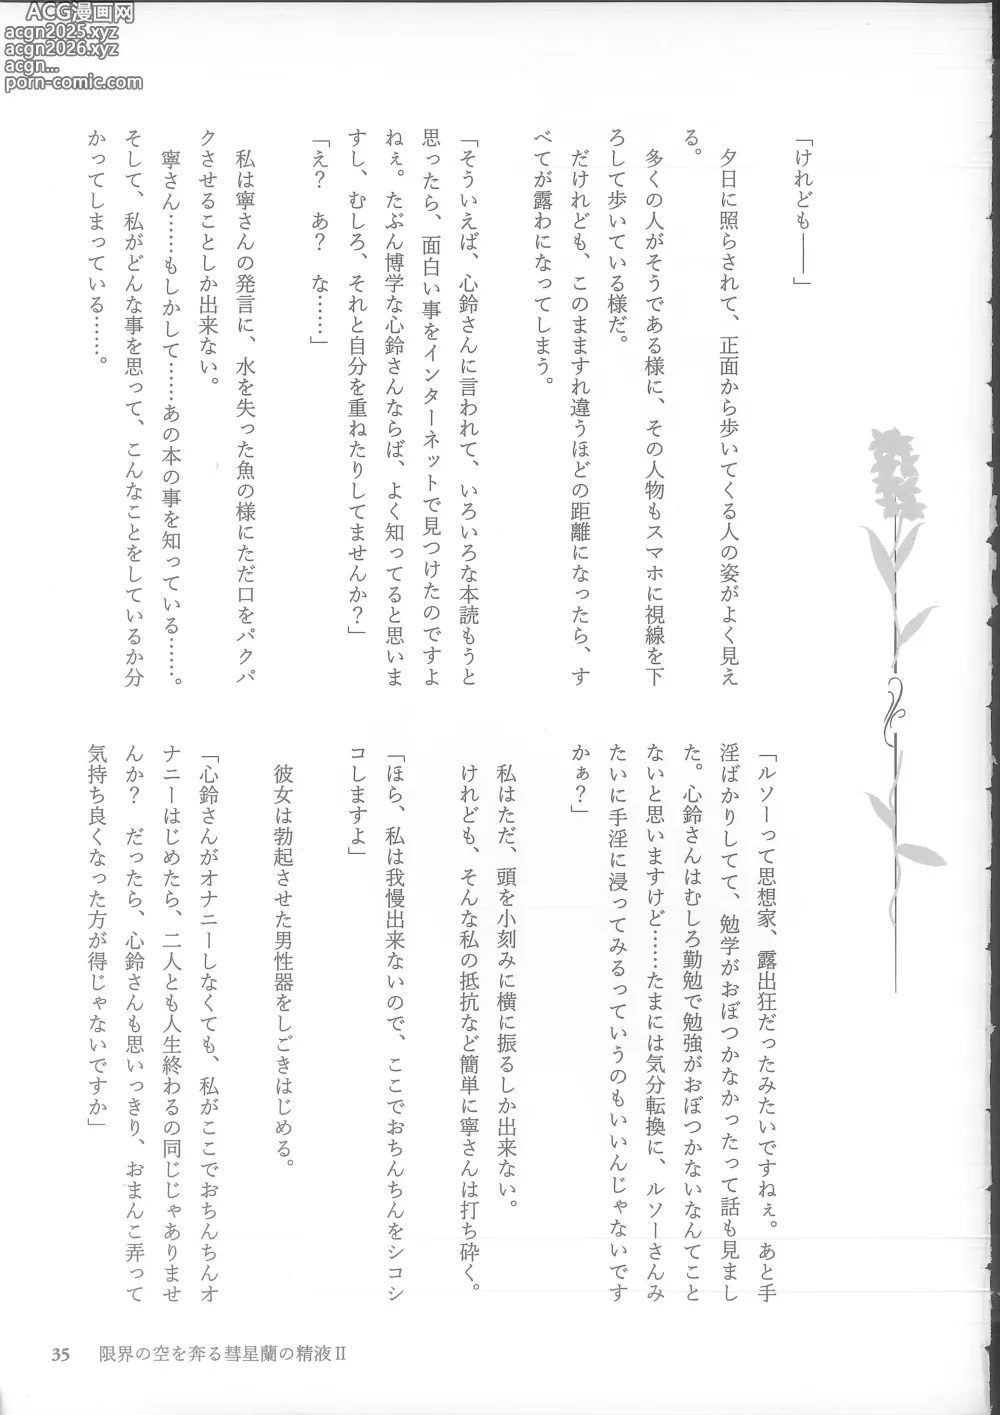 ACG漫画网
acgn2025.xyz
acgn2026.xyz
acgn...
porn-comic.com
「けれども――」
　夕日に照らされて、正面から歩いてくる人の姿がよく見え
る。
　多くの人がそうである様に、その人物もスマホに視線を下
ろして歩いている様だ。
　だけれども、このまますれ違うほどの距離になったら、す
べてが露わになってしまう。
「そういえば、心鈴さんに言われて、いろいろな本読もうと
思ったら、面白い事をインターネットで見つけたのですよ
ねぇ。たぶん博学な心鈴さんならば、よく知ってると思いま
すし、むしろ、それと自分を重ねたりしてませんか？」
「え？　あ？　な……」
　私は寧さんの発言に、水を失った魚の様にただ口をパクパ
クさせることしか出来ない。
　寧さん……もしかして……あの本の事を知っている……。
そして、私がどんな事を思って、こんなことをしているか分
かってしまっている……。
「ルソーって思想家、露出狂だったみたいですねぇ。あと手
淫ばかりしてて、勉学がおぼつかなかったって話も見まし
た。心鈴さんはむしろ勤勉で勉強がおぼつかないなんてこと
ないと思いますけど……たまには気分転換に、ルソーさんみ
たいに手淫に浸ってみるっていうのもいいんじゃないです
かぁ？」
　私はただ、頭を小刻みに横に振るしか出来ない。
　けれども、そんな私の抵抗など簡単に寧さんは打ち砕く。
「ほら、私は我慢出来ないので、ここでおちんちんをシコシ
コしますよ」
　彼女は勃起させた男性器をしごきはじめる。
「心鈴さんがオナニーしなくても、私がここでおちんちんオ
ナニーはじめたら、二人とも人生終わるの同じじゃありませ
んか？　だったら、心鈴さんも思いっきり、おまんこ弄って
気持ち良くなった方が得じゃないですか」
35　限界の空を奔る彗星蘭の精液Ⅱ